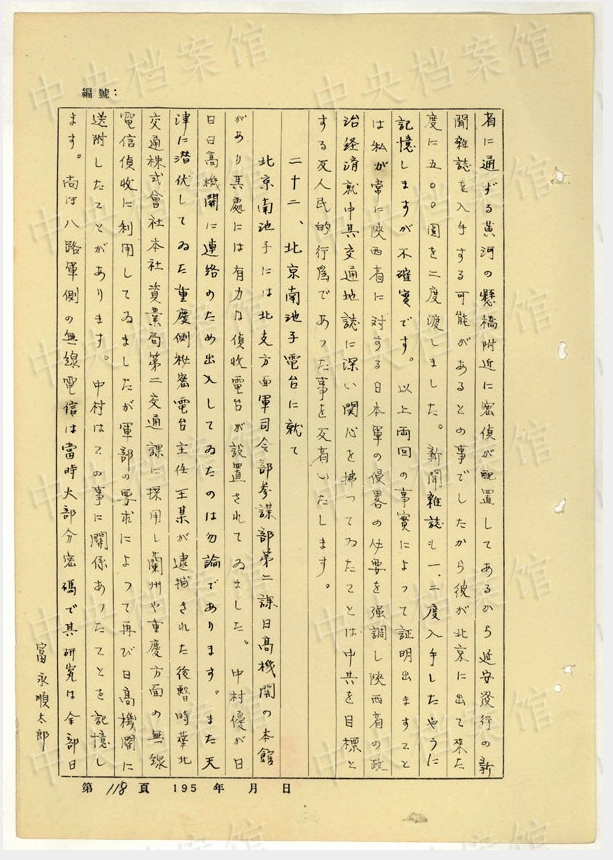 編號：
者に通ずる黄河の懸橋附近に密偵が配置してあるから延安發行の新
聞雜誌を入手する可能があるとの事でしたから彼が北京に出て来た
度に五〇〇圓を二度渡しました。新聞雜誌も一、二度入手したやうに
記憶しますが不確實です。以上両回の事實によって証明出ますこと
は私が常に陝西省に対する日本軍の侵畧の必要を強調し陝西省の政
治経済就中其交通地誌に深い関心を拂ってゐたことは中共を目標と
する反人民的行爲であった事を反省いたします。
二十二、北京南池子電台に就て
北京南池子には北支方面軍司令部参謀部第二課日高機関の本館
があり其處には有力な偵收電台が設置されてゐました。中村優が日
日日高機関に連絡のため出入してゐたのは勿論であります。また天
津に潜伏してゐた重慶側秘密電台主任王某が逮捕された後暫時華北
交通株式會社本社資業局第二交通課に採用し蘭州や重慶方面の無線
電信偵收に利用してゐましたが軍部の要求によって再び日高機関に
送附したことがあります。中村はこの事に関係あったことを記憶し
ます。尚ほ八路軍側の無線電信は當時大部分密碼で其研究は全部日
富永順太郎
第118頁 195 年 月 日
中央档案馆